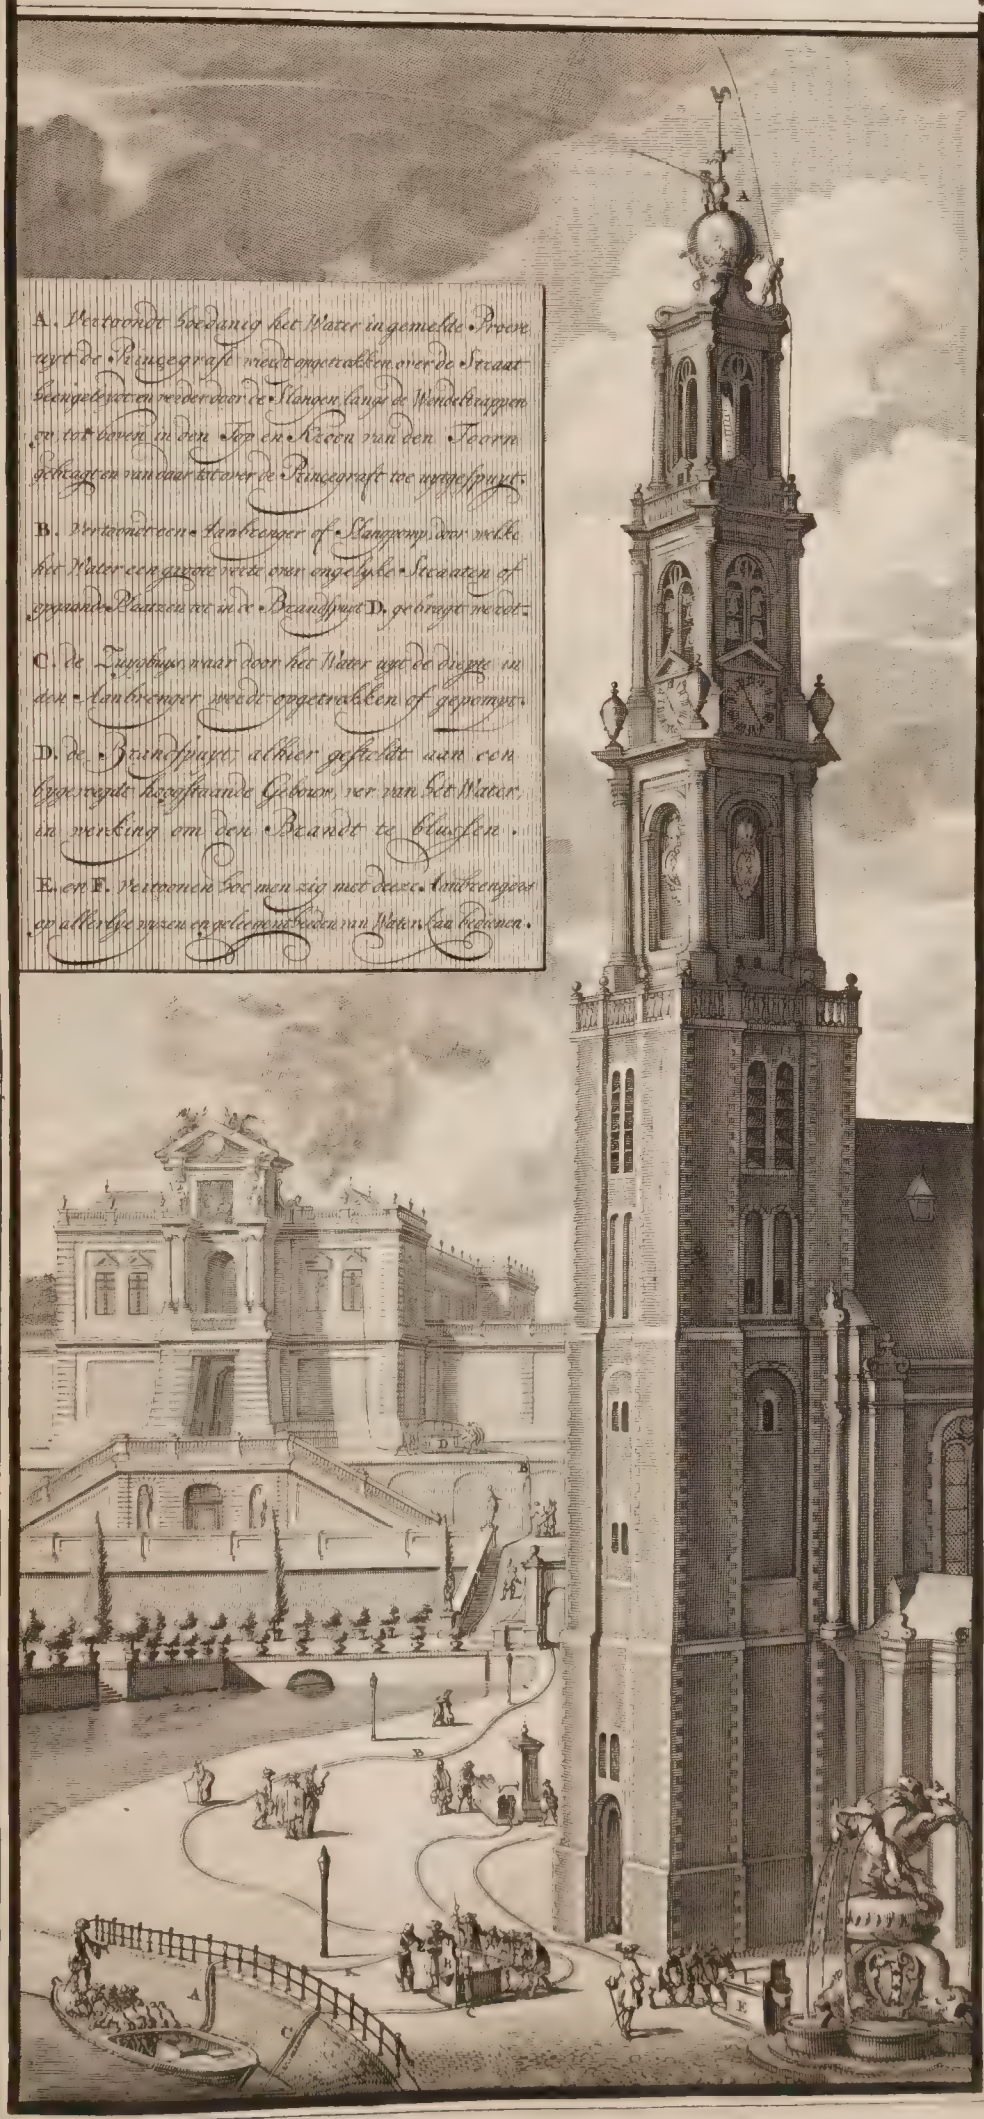 A. Vertoondt hoedanig het Water in gemelde Proeve
uyt de Rincegraft werdt opgetrakken over de Straat
heen geleyt en verder door de Slangen langs de Wendeltrappen
op, tot boven in den Top en Kroon van den Toorn
gebragt en van daar tot over de Rincegraft toe uytgespuyt.
B. Vertoondt een Aanbrenger of Slangpomp, door welke
het Water een groote veete over ongelyke Straaten of
opgaande Plaatzen tot in de Brandspuyt D. gebragt werdt.
C. de Zuygbuys, waar door het Water uyt de diepte in
den Aanbrenger werdt opgetrakken of gepompt.
D. de Brandspuyt, alhier gesteldt aan een
bygevoegdt hoogstaande Gebouw, ver van het Water,
in werking om den Brandt te blussen.
E. en F. Vertoonen hoe men zig met deeze Aanbrengers
op allerlye wyzen en geleegentheeden van Water kan bedienen.
A
D
B
B
A
C
K
H
E